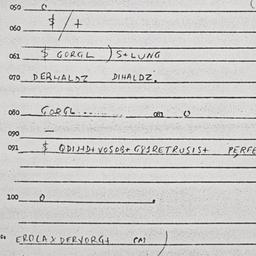 050 0
060 $ / +
061 $ GORGL ) S+LUNG
070 DERHALDZ DIHALDZ.
080 GORGL....... 081 0
090 —
091 $ QDIHD+VOSDB+G8SRETRUSIS+ PERFE
100 0
ERDLAXDERVORG+ (A)